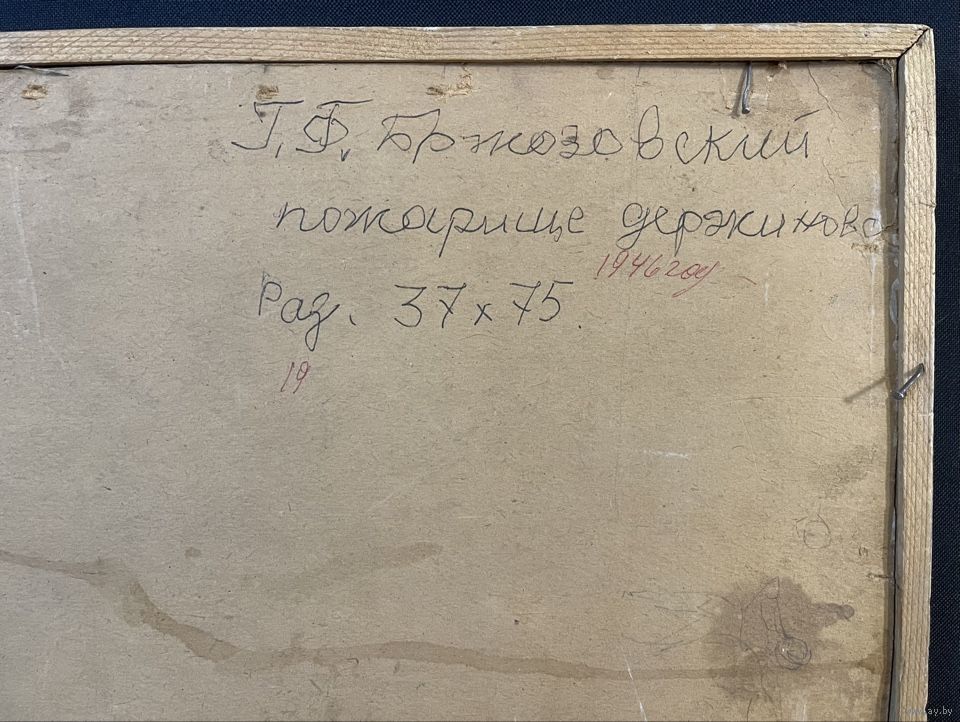 Г.Ф. Бржозовский
пожарище держиново
1946 год
Раз. 37 х 75
19